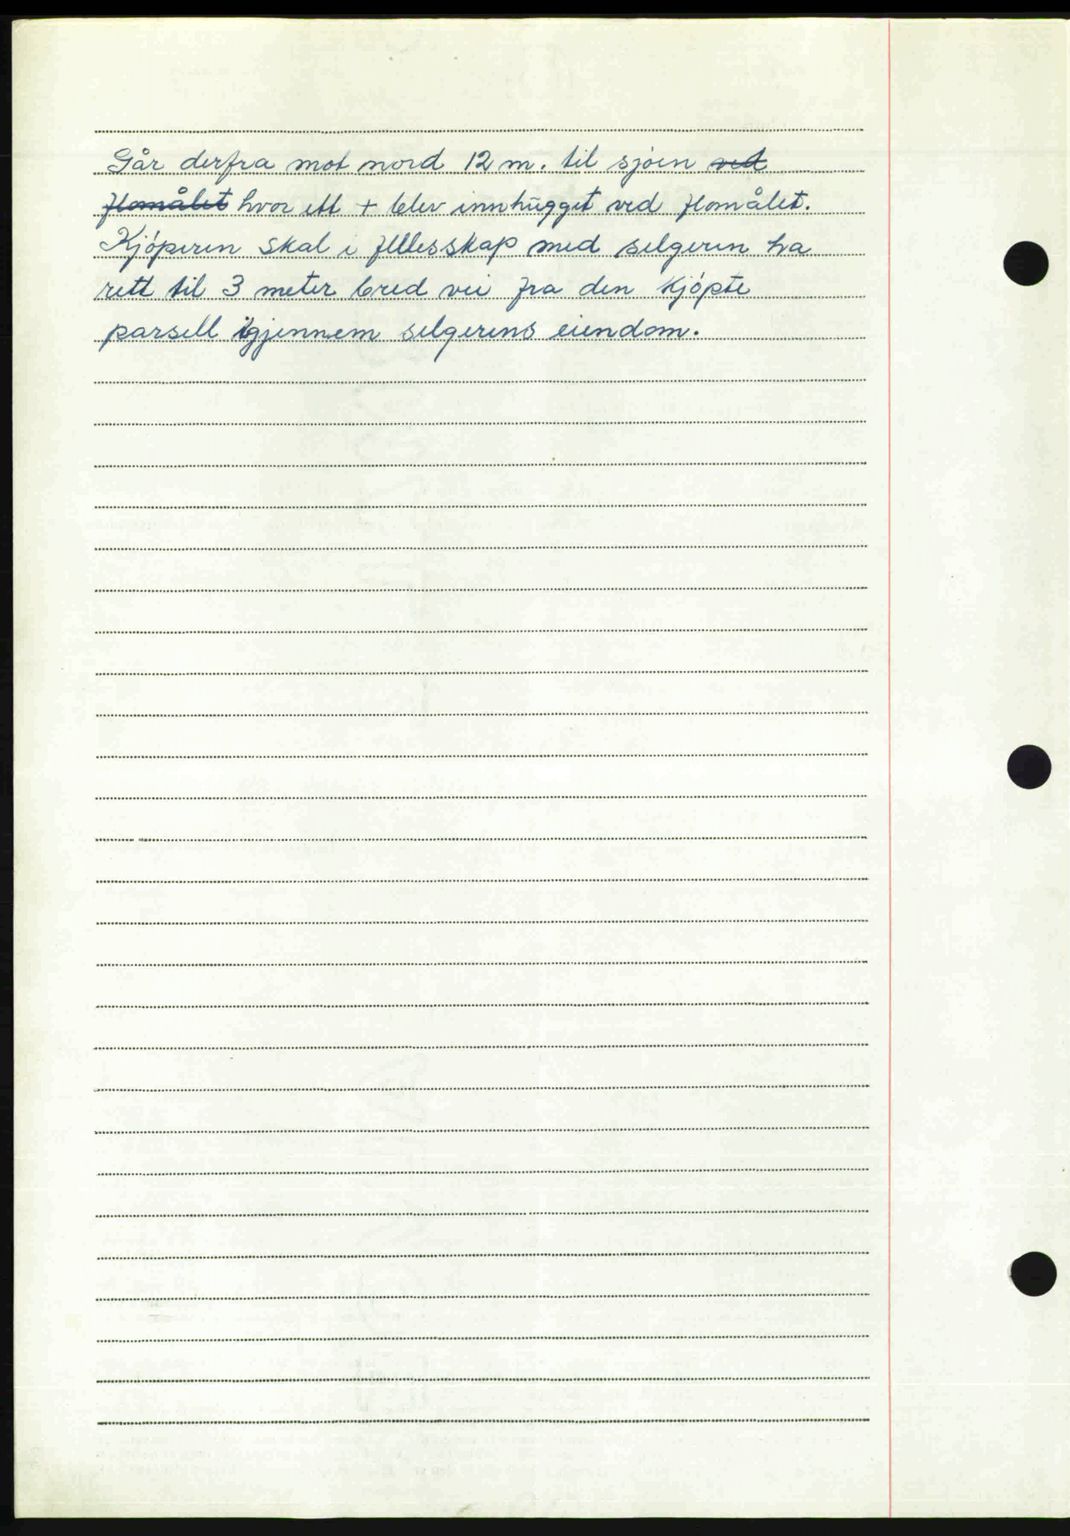 Går derfra mot nord 12 m. til sjøen ved
flomålet hvor ett + blev innhugget ved flomålet.
Kjøperen skal i fellesskap med selgeren ha
rett til 3 meter bred vei fra den kjøpte
parsell igjennem selgerens eiendom.